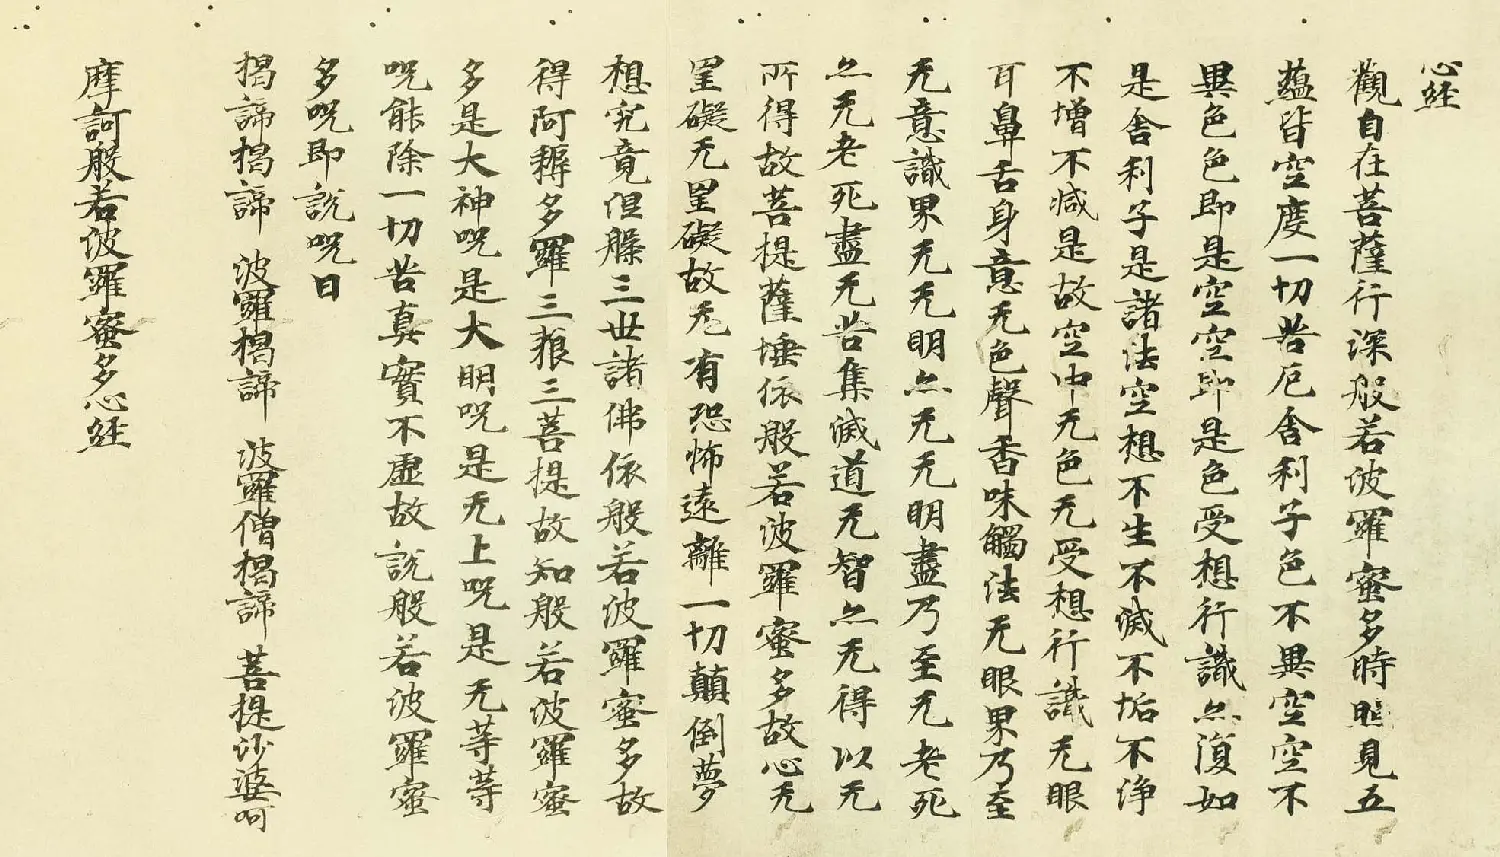 心経
觀自在菩薩行深般若波羅蜜多時照見五
蘊皆空度一切苦厄舍利子色不異空空不
異色色即是空空即是色受想行識亦復如
是舍利子是諸法空想不生不滅不垢不浄
不增不減是故空中无色无受想行識无眼
耳鼻舌身意无色聲香味觸法无眼界乃至
无意識界无无明亦无无明盡乃至无老死
亦无老死盡无苦集滅道无智亦无得以无
所得故菩提薩埵依般若波羅蜜多故心无
罣礙无罣礙故无有恐怖遠離一切顛倒夢
想究竟但槃三世諸佛依般若波羅蜜多故
得阿耨多羅三藐三菩提故知般若波羅蜜
多是大神呪是大明呪是无上呪是无等等
呪能除一切苦真實不虛故說般若波羅蜜
多呪即說呪曰
揭諦揭諦 波羅揭諦 波羅僧揭諦 菩提沙婆呵
摩訶般若波羅蜜多心経